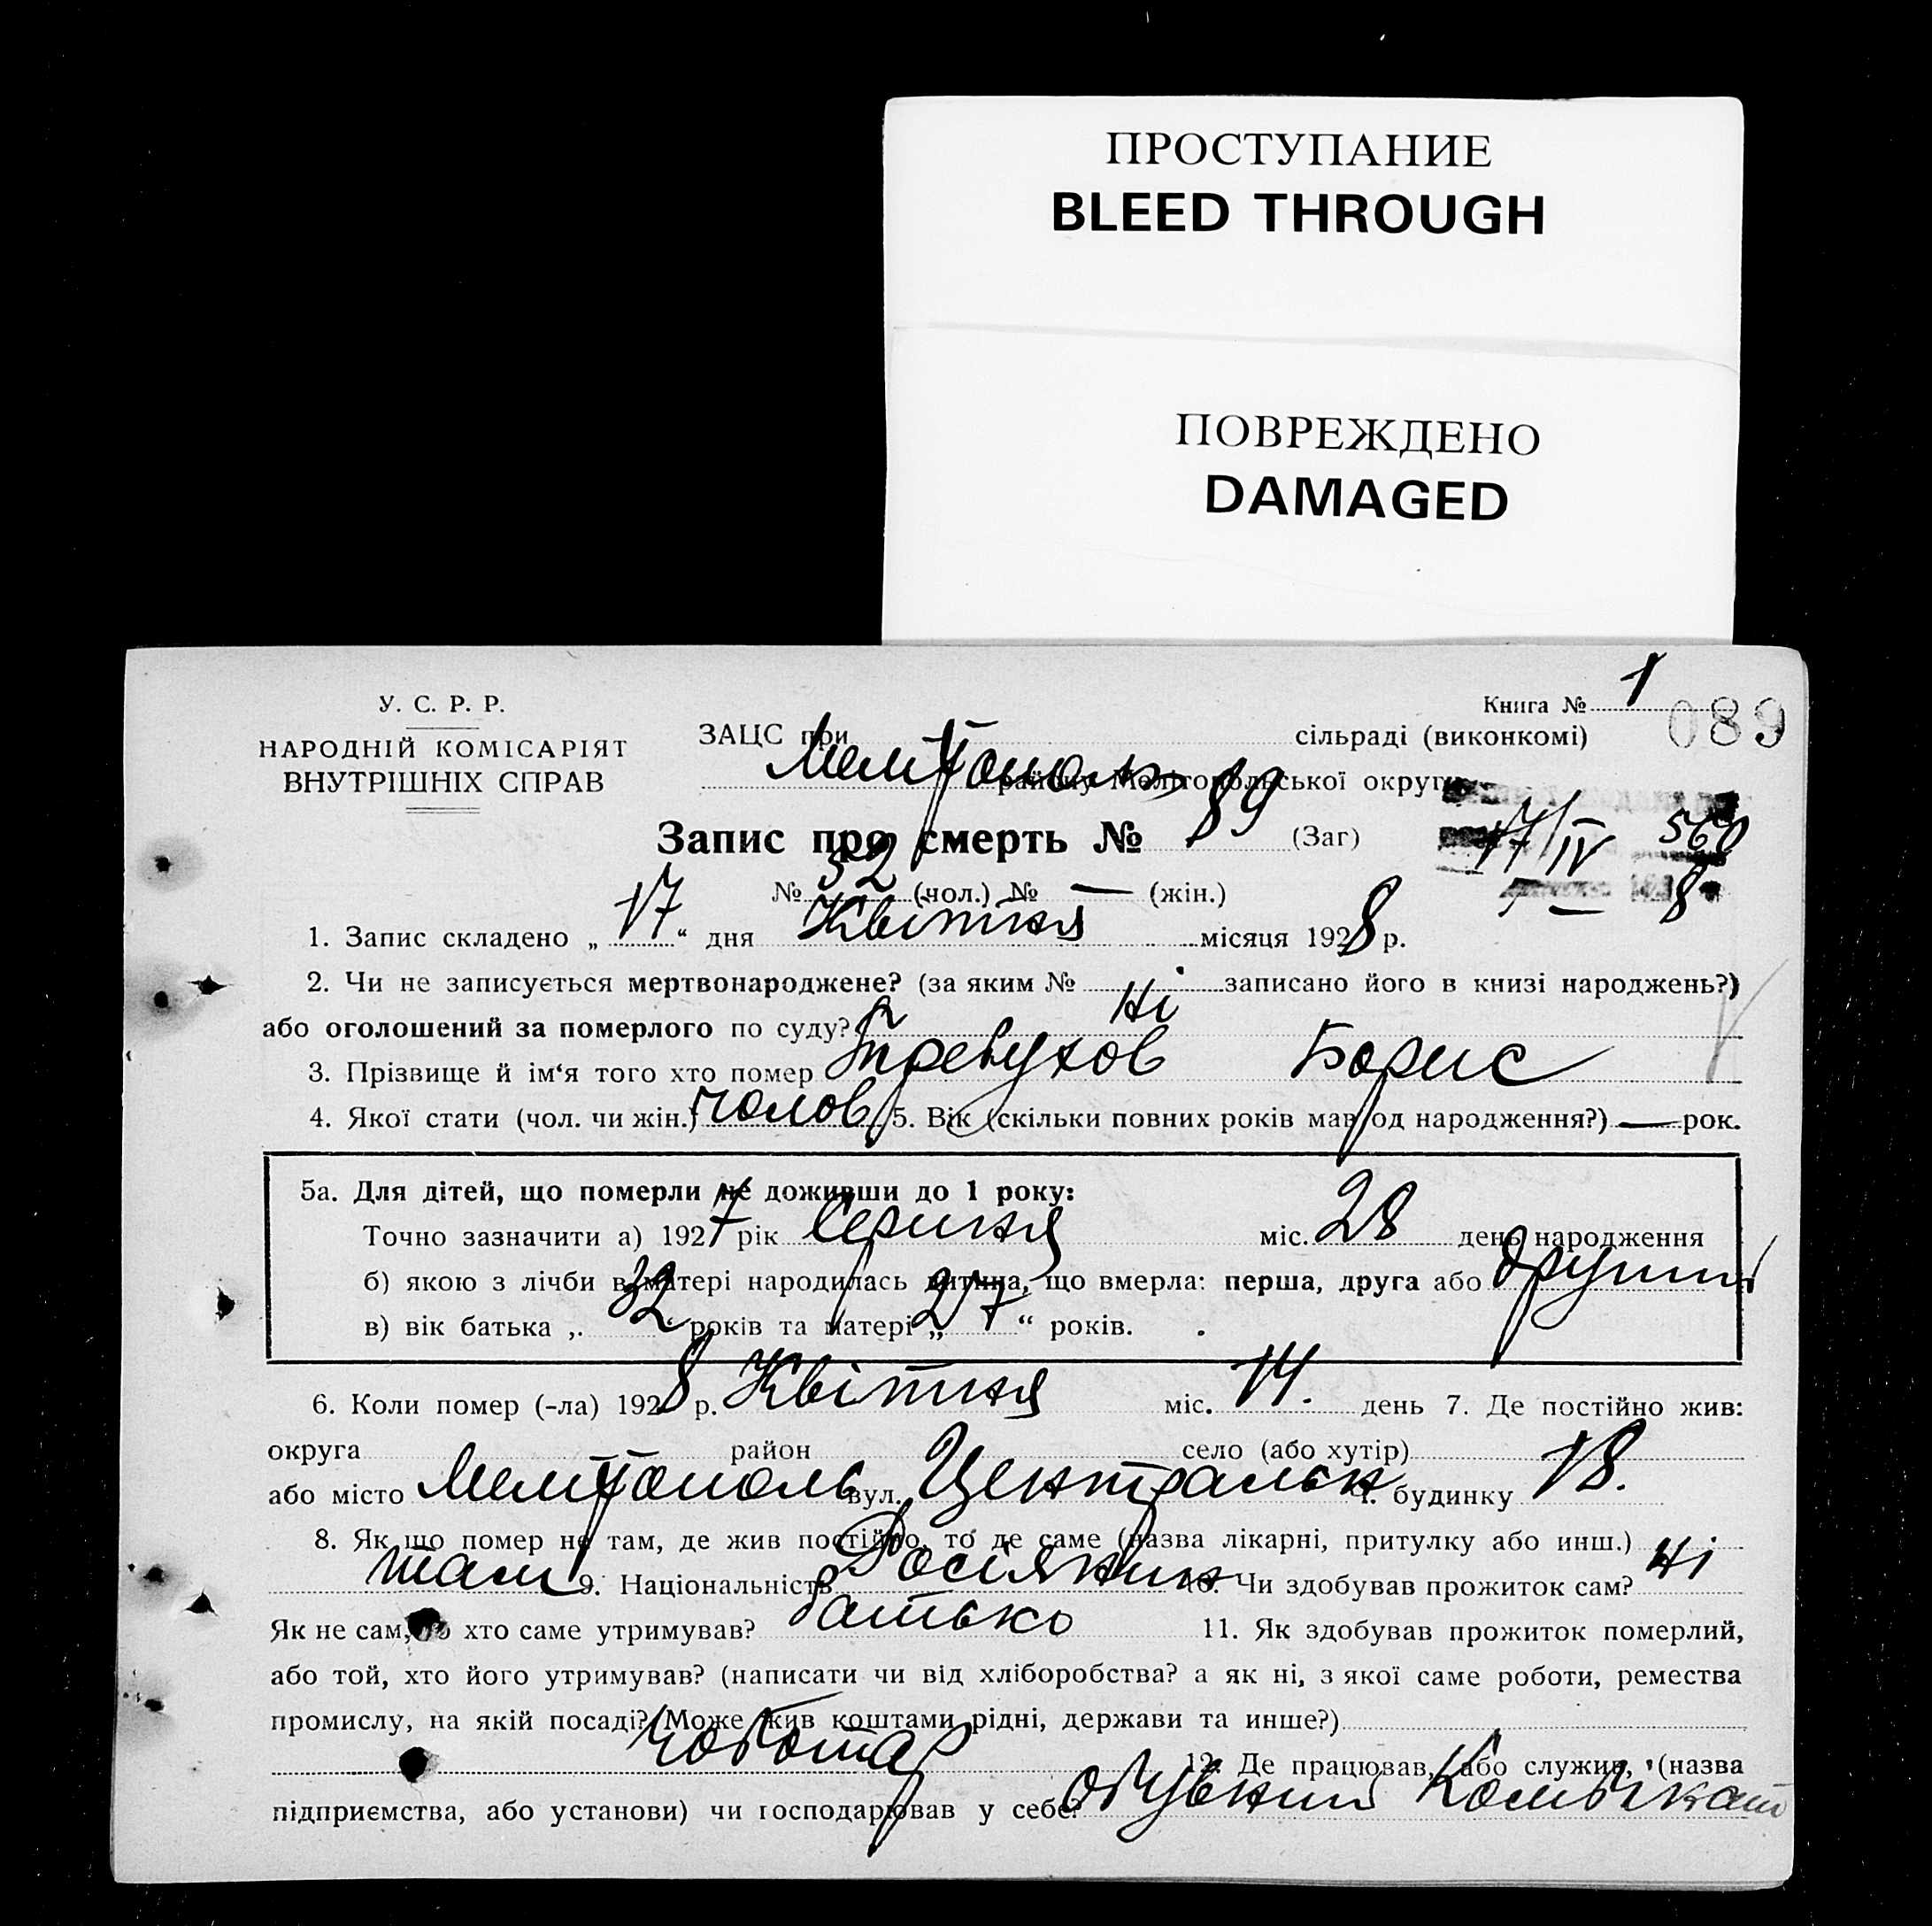 ПРОСТУПАНИЕ
BLEED THROUGH
ПОВРЕЖДЕНО
DAMAGED
Книга № 1
089
У. С. Р. Р.
НАРОДНІЙ КОМІСАРІЯТ
ВНУТРІШНІХ СПРАВ
ЗАЦС при сільраді (виконкомі)
Мелітополь району Мелітопольської округи
Запис про смерть № 89 (Заг)
17/IV 560
8
№ 52 (чол.) № — (жін.)
1. Запис складено „ 17 “ дня Квітня місяця 1928 р.
2. Чи не записується мертвонароджене? (за яким № записано його в книзі народжень?)
або оголошений за померлого по суду? Ні
3. Прізвище й ім‘я того хто помер Требухов Борис
4. Якої стати (чол. чи жін.) чолов 5. Вік (скільки повних років мав од народження?) — рок.
5а. Для дітей, що померли не доживши до 1 року:
Точно зазначити а) 1927 рік Серпня міс. 28 день народження
б) якою з лічби в матері народилась дитина, що вмерла: перша, друга або другий
в) вік батька „ 32 років та матері „ 27 “ років.
6. Коли помер (-ла) 1928 р. Квітня міс. 14. день 7. Де постійно жив:
округа район село (або хутір)
або місто Мелітополь вул. Центральн ч. будинку 18.
8. Як що помер не там, де жив постійно, то де саме (назва лікарні, притулку або инш.)
там 9. Національність Росіянин 10. Чи здобував прожиток сам? Ні
Як не сам, то хто саме утримував? батько 11. Як здобував прожиток померлий,
або той, хто його утримував? (написати чи від хліборобства? а як ні, з якої саме роботи, ремества
промислу, на якій посаді? Може жив коштами рідні, держави та инше?)
чоботар 12. Де працював, або служив, (назва
підприємства, або установи) чи господарював у себе? обувний Комбінат